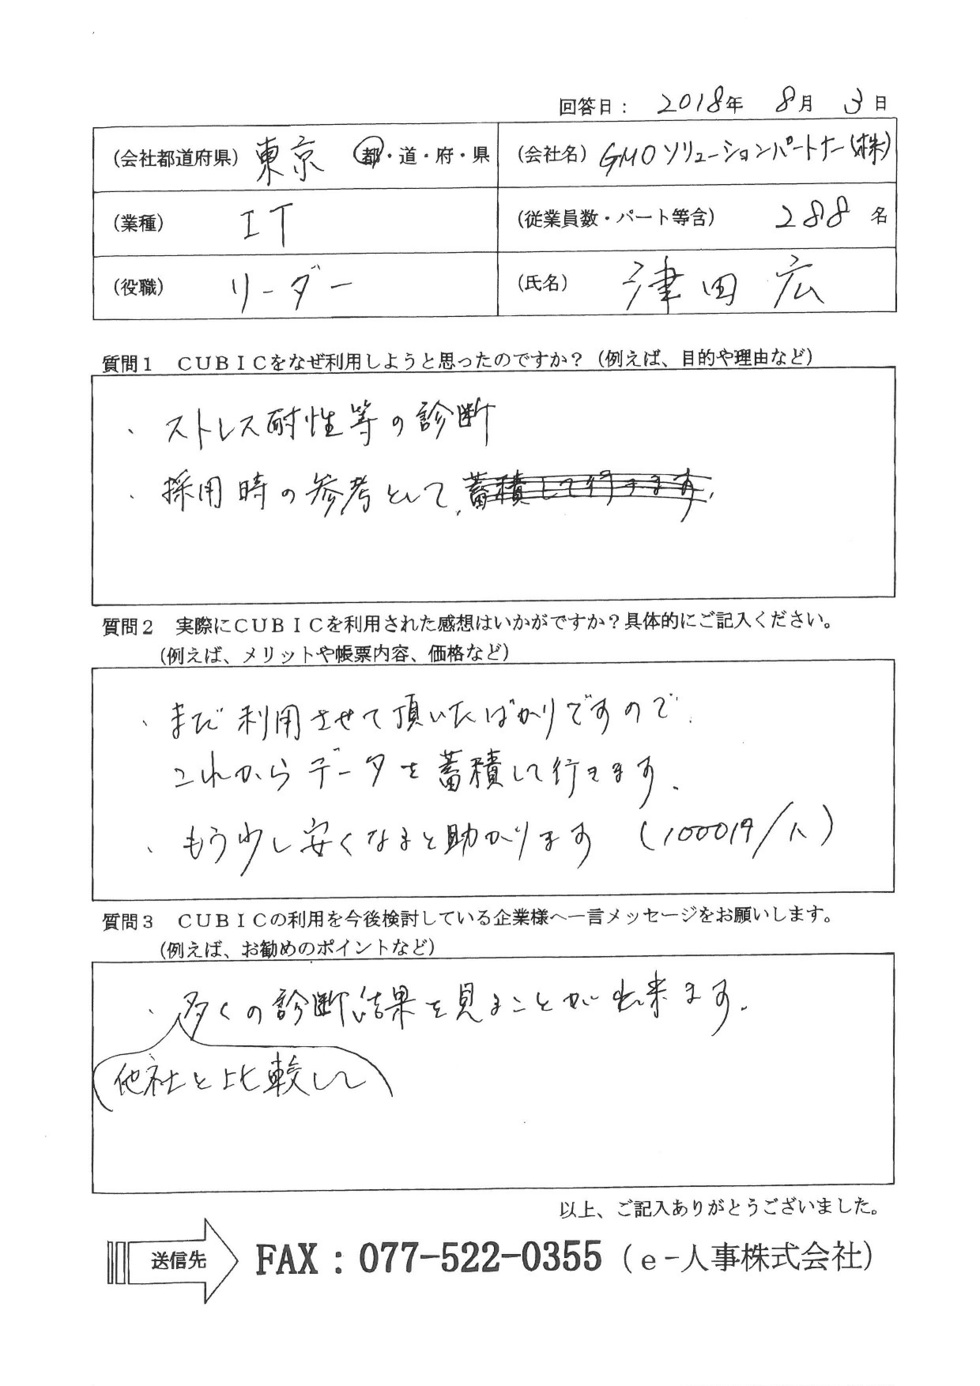 回答日： 2018年 8月 3日
（会社都道府県） 東京 都・道・府・県
（会社名） GMOソリューションパートナー（株）
（業種） IT
（従業員数・パート等含） 288 名
（役職） リーダー
（氏名） 津田 広
質問1　CUBICをなぜ利用しようと思ったのですか？（例えば、目的や理由など）
・ストレス耐性等の診断
・採用時の参考として、蓄積して行きます。
質問2　実際にCUBICを利用された感想はいかがですか？具体的にご記入ください。
（例えば、メリットや帳票内容、価格など）
・まだ利用させて頂いたばかりですので、
これからデータを蓄積して行きます。
・もう少し安くなると助かります（1000円/人）
質問3　CUBICの利用を今後検討している企業様へ一言メッセージをお願いします。
（例えば、お勧めのポイントなど）
・多くの診断結果を見ることが出来ます。
他社と比較して
以上、ご記入ありがとうございました。
送信先 FAX：077-522-0355（e-人事株式会社）